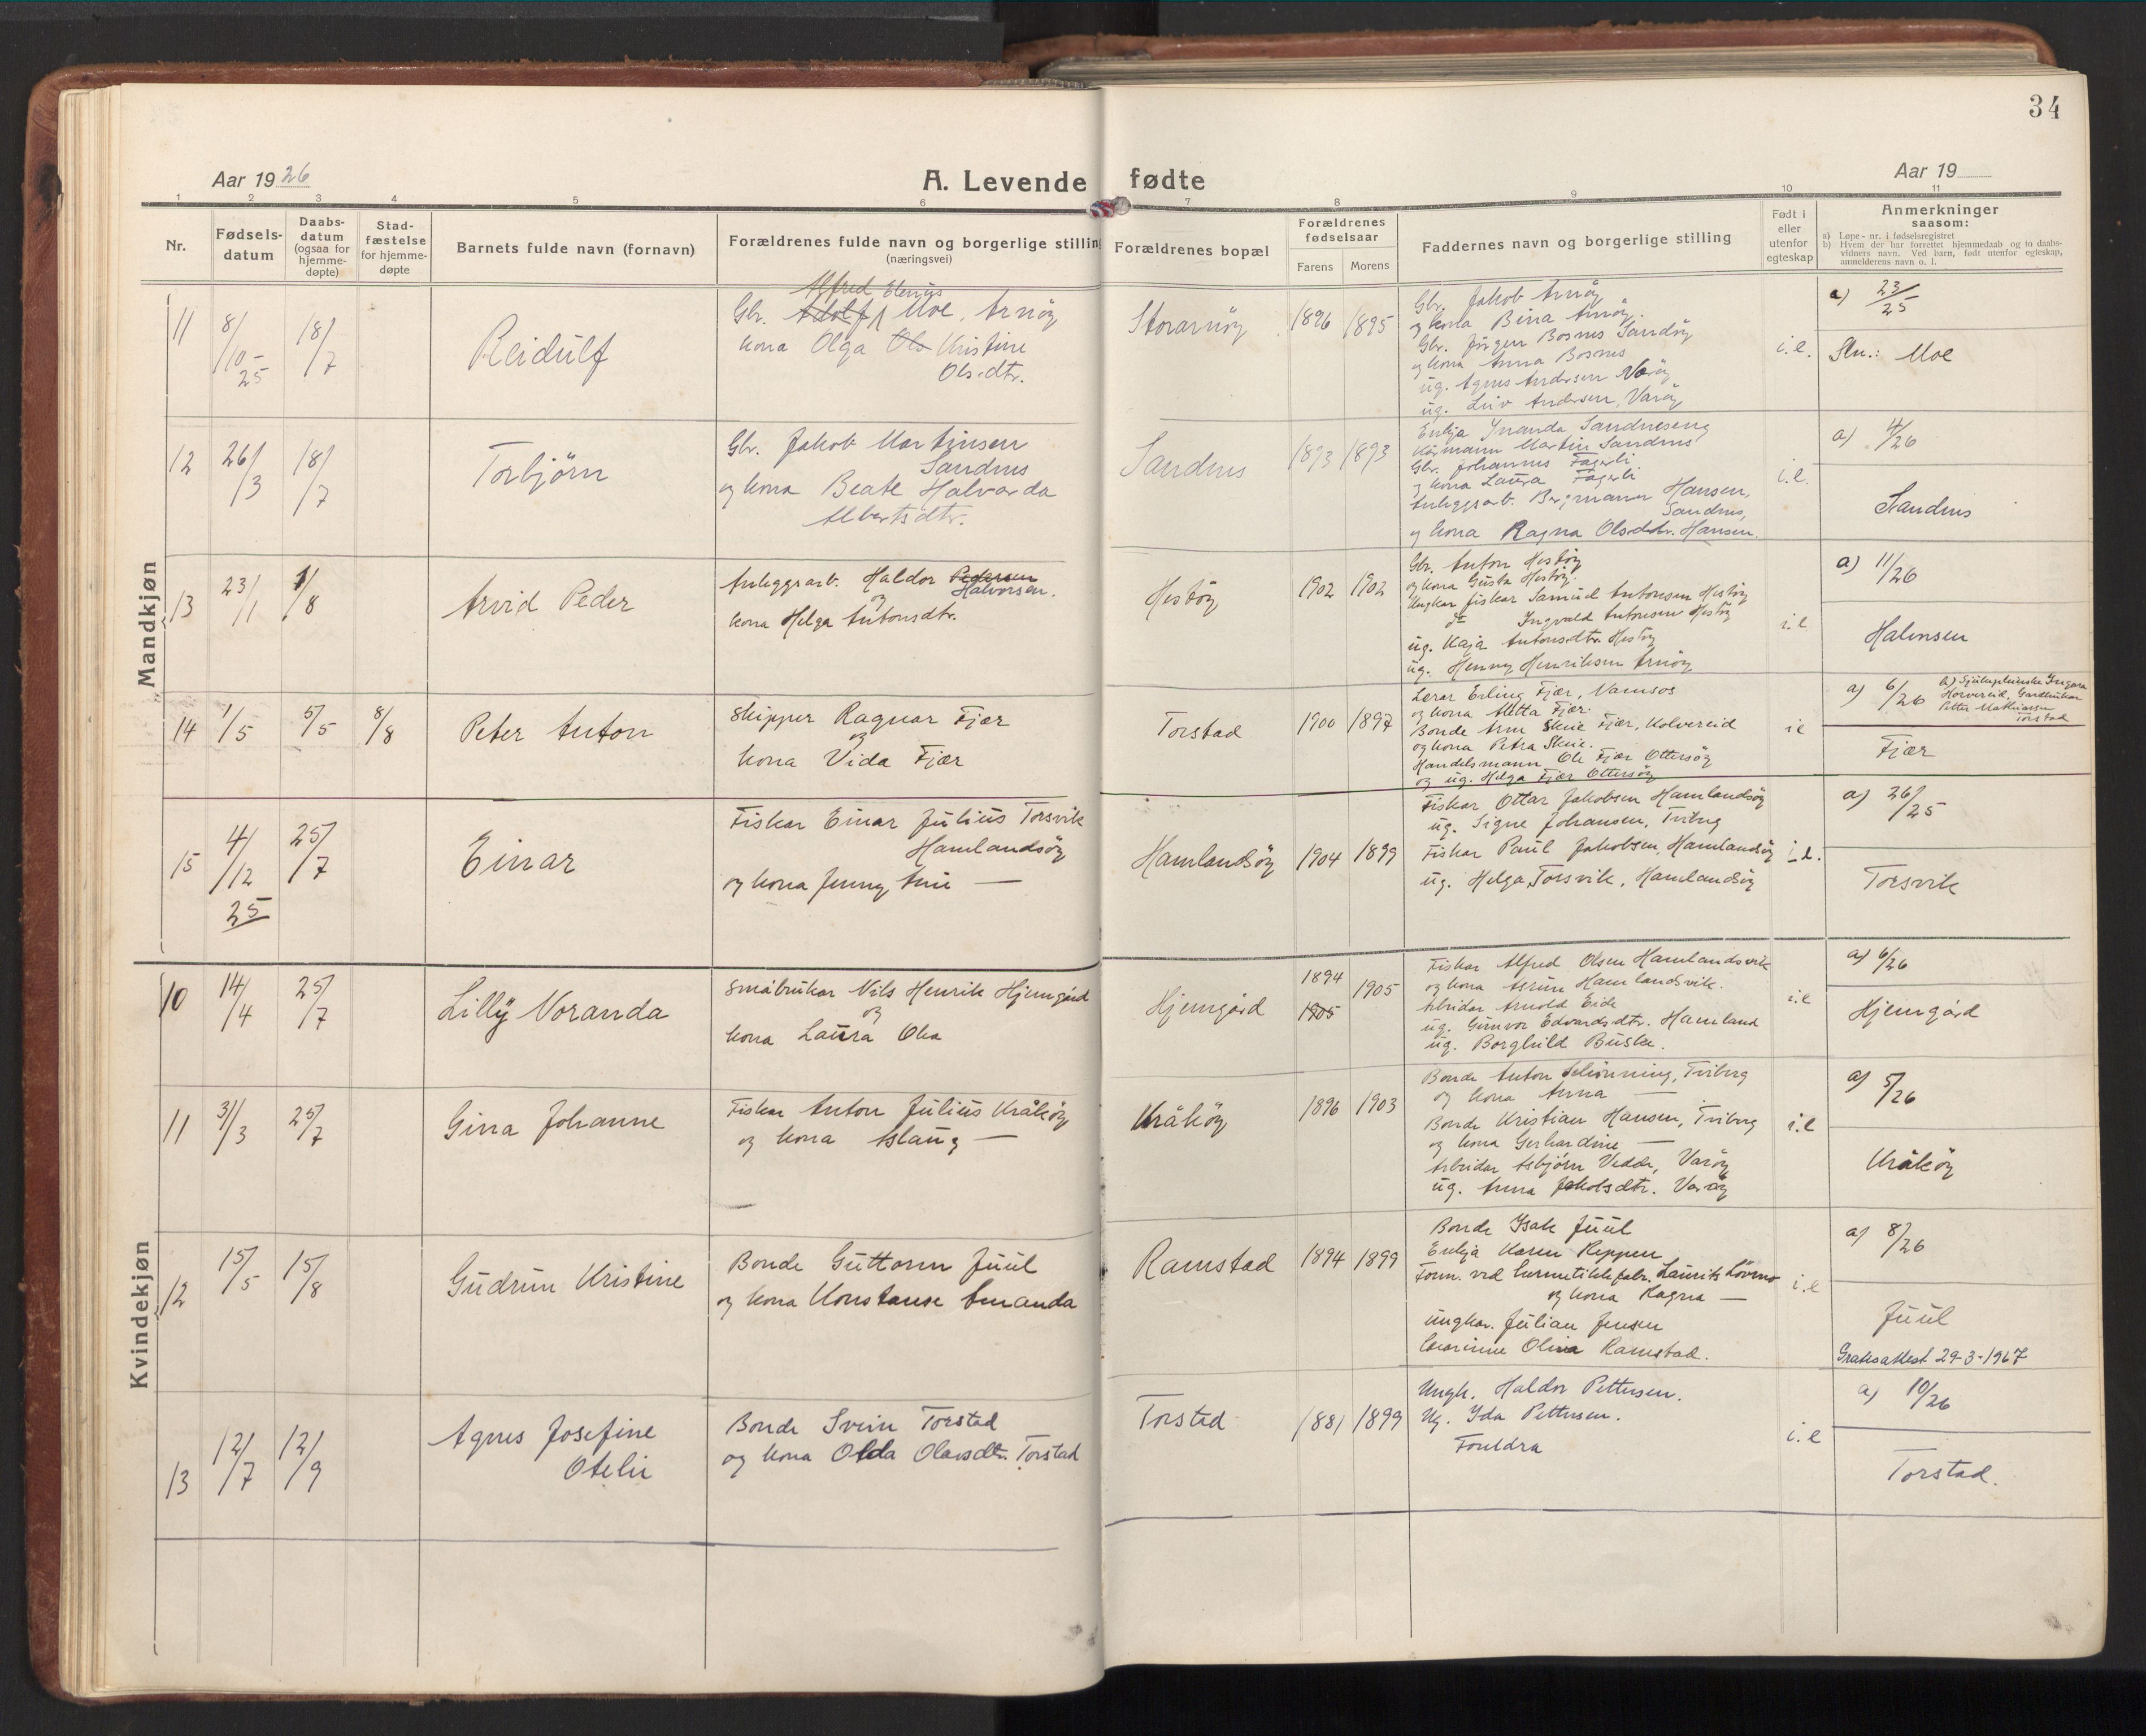 34
Aar 1926
A. Levende fødte
Aar 19
1 2 3 4 5 6 7 8 9 10 11
Nr.
Fødsels-
datum
Daabs-
datum
(ogsaa for
hjemme-
døpte)
Stad-
fæstelse
for hjemme-
døpte
Barnets fulde navn (fornavn)
Forældrenes fulde navn og borgerlige stilling
(næringsvei)
Forældrenes bopæl
Forældrenes
fødselsaar
Farens Morens
Faddernes navn og borgerlige stilling
Født i
eller
utenfor
egteskap
Anmerkninger
saasom:
a) Løpe-nr. i fødselsregistret
b) Hvem der har forrettet hjemmedaab og to daabs-
vidners navn. Ved barn, født utenfor egteskap,
anmelderens navn o. l.
Mandkjøn
11
8/10-25
18/7
Reidulf
Alfred
Gbr. Adolf Moe, Arnöy
kona Olga Ols Kristine
Olsdtr.
Storarnöy
1896 1895
Gbr. Jakob Arnöy
og kona Bina Arnöy.
Gbr. Jörgen Bosnes Sandöy
og kona Anna Bosnes
ug. Agnes Andersen Varöy
ug. Liv Andersen, Varöy
i.e.
a) 23/25
Sln.: Moe
12
26/3
18/7
Torbjörn
Gbr. Jakob Martinsen
Sandnes
og kona Beate Halvarda
Albertsdtr.
Sandnes
1893 1893
Enkja Inanda Sandneseng
Martin Sandnes
Gbr. Johannes Fagerli
og kona Laura Fagerli
Anleggsarb. Bergmann Hansen,
Sandnes,
og kona Ragna Olsdtr. Hansen.
i.e.
a) 4/26
Sandnes
13
23/1
1/8
Arvid Peder
Anleggsarb. Haldor Pedersen
Halvorsen.
og
kona Helga Antonsdtr.
Hestöy
1902 1902
Gbr. Anton Hestöy
og kona Gusta Hestöy.
Ungkar fiskar Samuel Antonsen Hestöy
do Ingvald Antonsen Hestöy
ug. Kaja Antonsdtr. Hestöy
ug. Henny Henriksen Arnöy
i.e
a) 11/26
Halvorsen
14
1/5
5/5
8/8
Peter Anton
Skipper Ragnar Fjær
og
kona Vida Fjær
Torstad
1900 1897
Lærar Erling Fjær, Namsos
og kona Aletta Fjær.
Bonde Arne Skeie Fjær, Kolvereid
og kona Petra Skeie.
Handelsmann Ole Fjær Ottersöy
og ug. Helga Fjær Ottersöy
i.e
a) 6/26
b) Sjukepleierske Ingara
Horvereid, Gardbrukar
Petter Mathiasen
Torstad
Fjær
15
4/12
25
25/7
Einar
Fiskar Einar Julius Torsvik
Hamlandsöy
og kona Jenny Arie —
Hamlandsöy
1904 1899
Fiskar Ottar Jakobsen Hamlandsöy
ug. Signe Johansen, Triberg
Fiskar Paul Jakobsen, Hamlandsöy
ug. Helga Torsvik, Hamlandsöy
i.e.
a) 26/25
Torsvik
Kvindekjøn
10
14/4
25/7
Lilly Noranda
Småbrukar Nils Henrik Hjemgård
og
kona Laura Olea
Hjemgård
1894
1905
1905
Fiskar Alfred Olsen Hamlandsvik
og kona Asrun Hamlandsvik.
Arbeidar Arnold Eide
ug. Gunvor Edvardsdtr. Hamland
ug. Borghild Buske.
i.e
a) 6/26
Hjemgård
11
31/3
25/7
Gina Johanne
Fiskar Anton Julius Kråköy
og kona Aslaug —
Kråköy
1896 1903
Bonde Anton Schönning, Triberg
og kona Anna —
Bonde Kristian Hansen, Triberg
og kona Gerhardine —
Arbeidar Asbjörn Vedde, Varöy
ug. Anna Jakobsdtr. Varöy
i.e
a) 5/26
Kråköy
12
15/5
15/8
Gudrun Kristine
Bonde Guttorm Juul
og kona Konstanse Amanda
Ramstad
1894 1899
Bonde Isak Juul
Enkja Karen Reppen
Form. ved hermetikkfabr. Laurits Lövmo
og kona Ragna —
ungkar. Julian Jensen
Olina Ramstad.
i.e
a) 8/26
Juul
Gratisattest 29-3-1967
13
12/7
12/9
Agnes Josefine
Otelie
Bonde Svein Torstad
og kona Olda Olavsdtr. Torstad
Torstad
1881 1899
Ungk. Haldor Pettersen.
Ug. Ida Pettersen.
Foreldra
i.e
a) 10/26
Torstad.